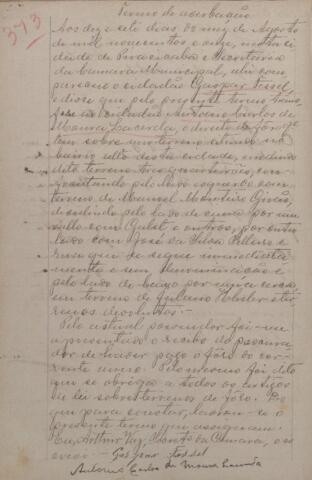 Termo de averbação
373
Aos dez e sete dias do mez de Agosto
de mil novecentos e onze, nesta ci
dade de Piracicaba e Secretaria
da Camara Municipal, ahi com
pareceu o cidadão Gaspar Fessel
e disse que pelo presente termo trans
fere ao cidadão Antonio Carlos de
Moura Lacerda, o direito de fôro que
tem sobre um terreno situado no
bairro alto desta cidade, medindo
dito terreno tres quarteirões, con
frontando pelo lado esquerdo com
terreno de Manoel Monteiro
dividindo pelo lado de cima por um
vallo com e outros, por outro
lado com José da Silva e
rua que se segue
e sem denominação e
pelo lado de baixo por uma cerca
um terreno de
renos devolutos.
Pelo actual possuidor foi-me
apresentado o recibo do procura
dor de haver pago o fôro do cor
rente anno. Pelo mesmo foi dito
que se obrigava a todos os artigos
de lei sobre terrenos de fôro. Do
que para constar, lavrou-se o
presente termo que assignaram.
Eu, Arthur Vaz, da Camara, o es
crevi.
Gaspar Fessel
Antonio Carlos de Moura Lacerda